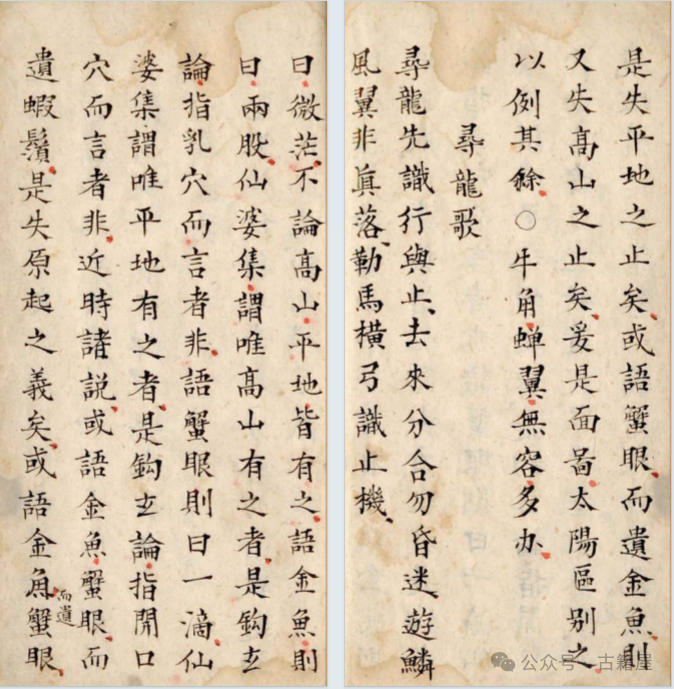 曰微茫不論高山平地皆有之語金魚則
曰兩股仙婆集謂唯高山有之者是鈎玄
論指乳穴而言者非語蟹眼則曰一滴仙
婆集謂唯平地有之者是鈎玄論指開口
穴而言者非近時諸説或語金魚蟹眼而
遺蝦鬚是失原起之義矣或語金魚而遺蟹眼
是失平地之止矣或語蟹眼而遺金魚則
又失高山之止矣爰是面啚太陽區别之
以例其餘○牛角蝉翼無容多办
尋龍歌
尋龍先識行與止去來分合勿昏迷遊鱗
風翼非眞落勒馬橫弓識止機
公众号·古籍屋